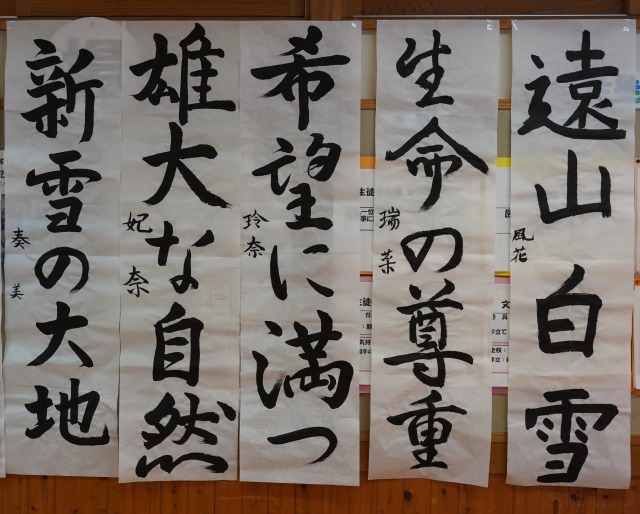 遠山白雪
風花
生命の尊重
瑞菜
希望に満つ
玲奈
雄大な自然
妃奈
新雪の大地
奏美
生徒
生徒
文